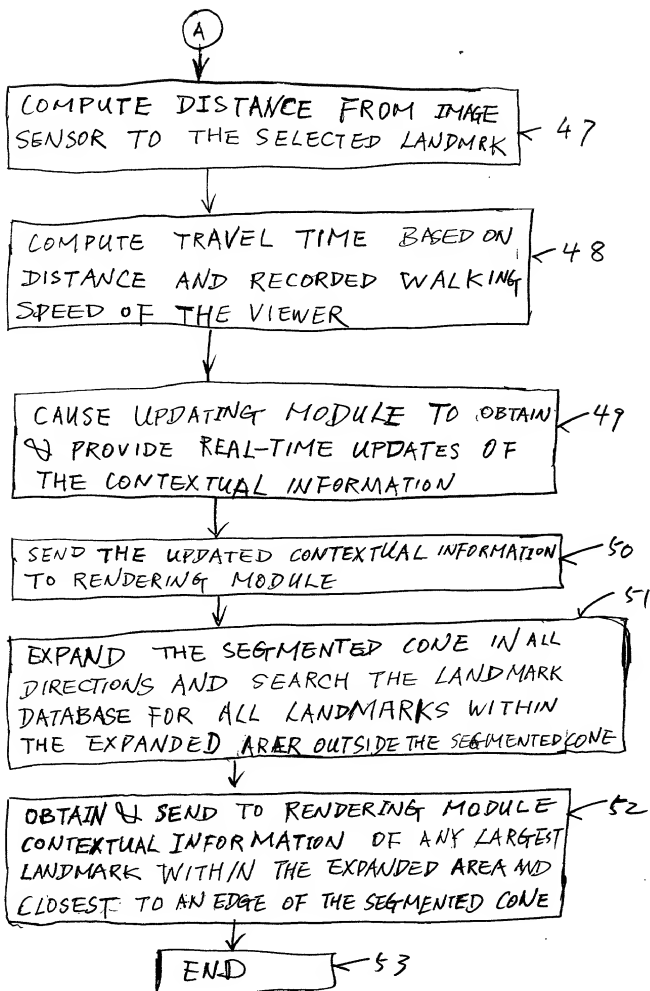 A
COMPUTE DISTANCE FROM IMAGE
SENSOR TO THE SELECTED LANDMRK
47
COMPUTE TRAVEL TIME BASED ON
DISTANCE AND RECORDED WALKING
SPEED OF THE VIEWER
48
CAUSE UPDATING MODULE TO OBTAIN
& PROVIDE REAL-TIME UPDATES OF
THE CONTEXTUAL INFORMATION
49
SEND THE UPDATED CONTEXTUAL INFORMATION
TO RENDERING MODULE
50
51
EXPAND THE SEGMENTED CONE IN ALL
DIRECTIONS AND SEARCH THE LANDMARK
DATABASE FOR ALL LANDMARKS WITHIN
THE EXPANDED ARAR OUTSIDE THE SEGMENTED CONE
OBTAIN & SEND TO RENDERING MODULE
CONTEXTUAL INFORMATION OF ANY LARGEST
LANDMARK WITHIN THE EXPANDED AREA AND
CLOSEST TO AN EDGE OF THE SEGMENTED CONE
52
END
53